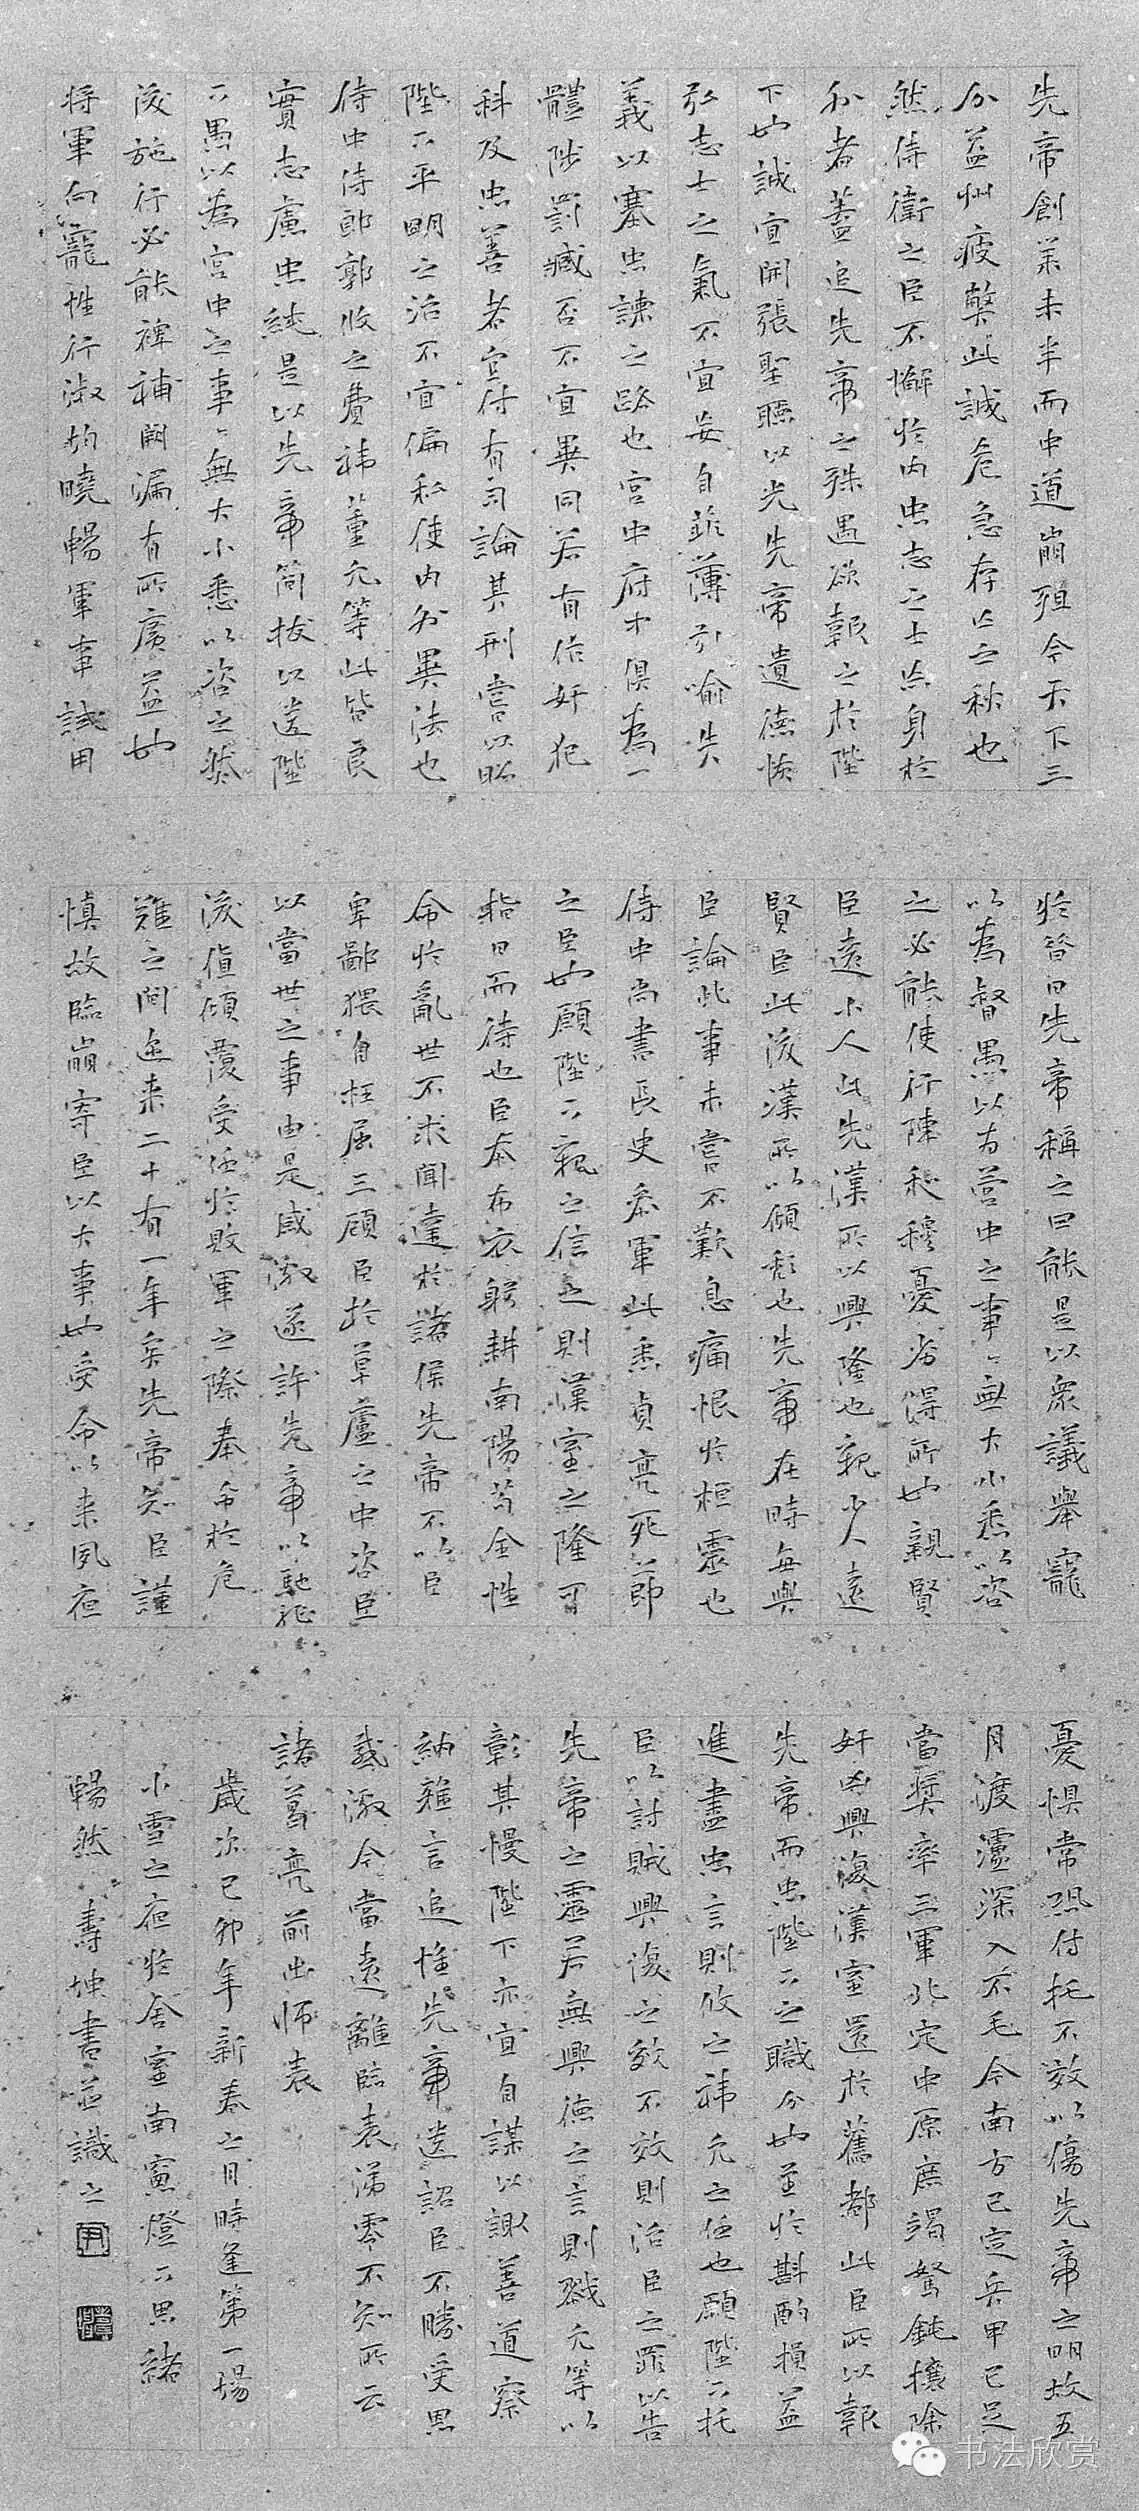 先帝創業未半而中道崩殂今天下三
分益州疲弊此誠危急存亡之秋也
然侍衛之臣不懈於内忠志之士忘身於
外者蓋追先帝之殊遇欲報之於陛
下也誠宜開張聖聽以光先帝遺德恢
弘志士之氣不宜妄自菲薄引喻失
義以塞忠諫之路也宮中府中俱為一
體陟罰臧否不宜異同若有作奸犯
科及忠善者宜付有司論其刑賞以昭
陛下平明之治不宜偏私使内外異法也
侍中侍郎郭攸之費禕董允等此皆良
實志慮忠純是以先帝簡拔以遺陛
下愚以為宮中之事〻無大小悉以咨之然
後施行必能裨補闕漏有所廣益也
將軍向寵性行淑均曉暢軍事試用
於昔日先帝稱之曰能是以衆議舉寵
以為督愚以為營中之事〻無大小悉以咨
之必能使行陳和穆優劣得所也親賢
臣遠小人此先漢所以興隆也親少人遠
賢臣此後漢所以傾頹也先帝在時每與
臣論此事未嘗不歎息痛恨於桓靈也
侍中尚書長史參軍此悉貞亮死節
之臣也願陛下親之信之則漢室之隆可
指日而待也臣本布衣躬耕南陽苟全性
命於亂世不求聞達於諸侯先帝不以臣
卑鄙猥自枉屈三顧臣於草廬之中咨臣
以當世之事由是感激遂許先帝以馳驅
後值傾覆受任於敗軍之際奉命於危
難之間迩来二十有一年矣先帝知臣謹
慎故臨崩寄臣以大事也受命以来夙夜
憂惧常恐付托不效以傷先帝之明故五
月渡瀘深入不毛今南方已定兵甲已足
當獎率三軍北定中原庶竭駑鈍攘除
奸凶興復漢室還於舊都此臣所以報
先帝而忠陛下之職分也至於斟酌損益
進盡忠言則攸之禕允之任也願陛下托
臣以討賊興復之效不效則治臣之罪以告
先帝之靈若無興德之言則戮允等以
彰其慢陛下亦宜自謀以諏善道察
納雅言追惟先帝遺詔臣不勝受恩
感激今當遠離臨表涕零不知所云
諸葛亮前出師表
歲次己卯年新春之月時逢第一場
小雪之夜於舍室南窗燈下思緒
暢然壽坤書並識之
书法欣赏